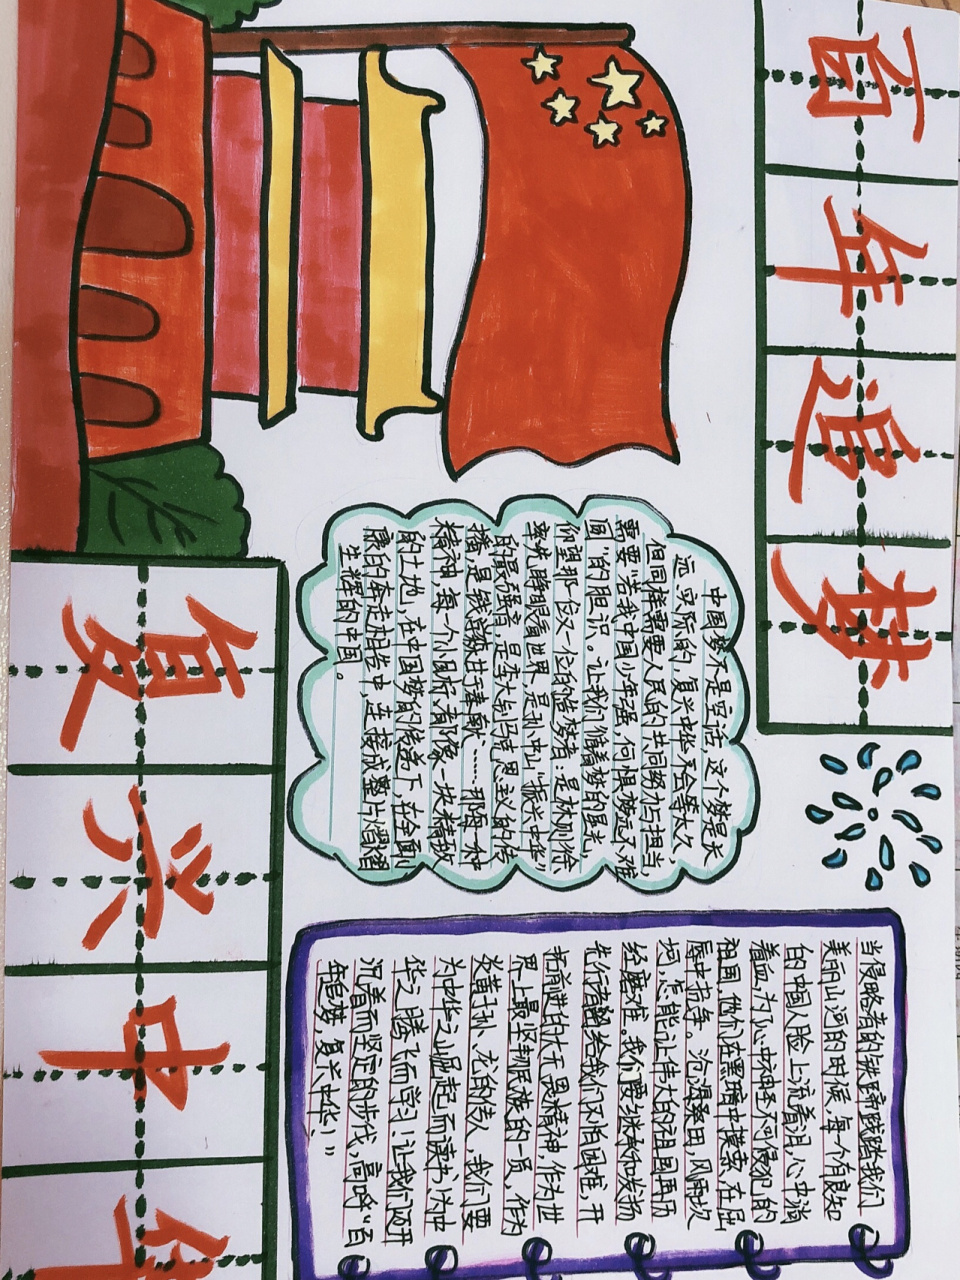 百年追梦
中国梦不是空话,这个梦是长
远,实际的,复兴中华不会等太久,
但同样需要人民的共同努力与担当,
需要“若我中国少年强,何惧梦远不难
圆”的胆识。让我们循着梦的星光,
仰望那一位又一位的追梦者,是林则徐
率先睁眼看世界,是孙中山“振兴中华”
的最强音,是李大钊马克思主义的传
播,是钱学森甘于奉献……那每一种
精神,每一个目标,都像一块精致
的土地,在中国梦的传递下,在全面
康的奔走相告中,连接成整片熠熠
生辉的中国。
当侵略者的铁蹄践踏我们
美丽山河的时候,每一个有良知
的中国人脸上流着泪,心中淌
着血,为了心中神经不可侵犯的
祖国,他们在黑暗中摸索,在屈
辱中抗争。沧海桑田,风雨坎
坷,怎能让伟大的祖国再历
经磨难。我们要继承和发扬
先行者给我们不怕困难,开
拓前进的大无畏精神,作为世
界上最坚韧民族的一员,作为
炎黄子孙、龙的传人,我们要
为中华之崛起而读书、为中
华之腾飞而学习!让我们迈开
沉着而坚定的步伐,高呼“百
年追梦,复兴中华!”
复兴中华